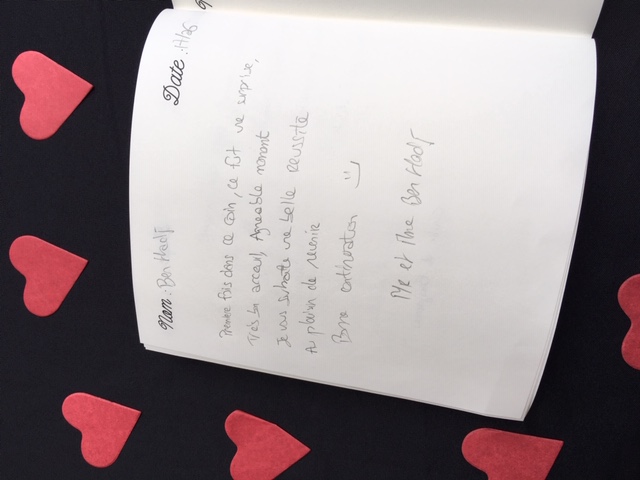 Nom : Ben Hadj
Date : 11/25
Première fois dans ce coin, ce fut une surprise,
Très bon acceuil, Agreable moment
Je vous souhaite une belle reussite
Au plaisir de revenir
Bonne continuation :)
Mr et Mme Ben Hadj